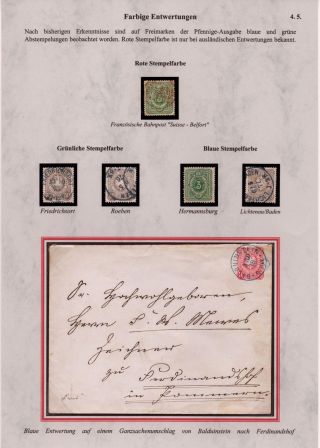 Farbige Entwertungen 4. 5.
Nach bisherigen Erkenntnisse sind auf Freimarken der Pfennige-Ausgabe blaue und grüne
Abstempelungen beobachtet worden. Rote Stempelfarbe ist nur bei ausländischen Entwertungen bekannt.
Rote Stempelfarbe
Französische Bahnpost "Suisse - Belfort"
Grünliche Stempelfarbe Blaue Stempelfarbe
Friedrichsort Roeben Hermannsburg Lichtenau/Baden
Sr. Hochwohlgeboren,
Herrn F. W. Mewes
Zeichner
zu Ferdinandshof
in Pommern
Blaue Entwertung auf einem Ganzsachenumschlag von Balduinstein nach Ferdinandshof